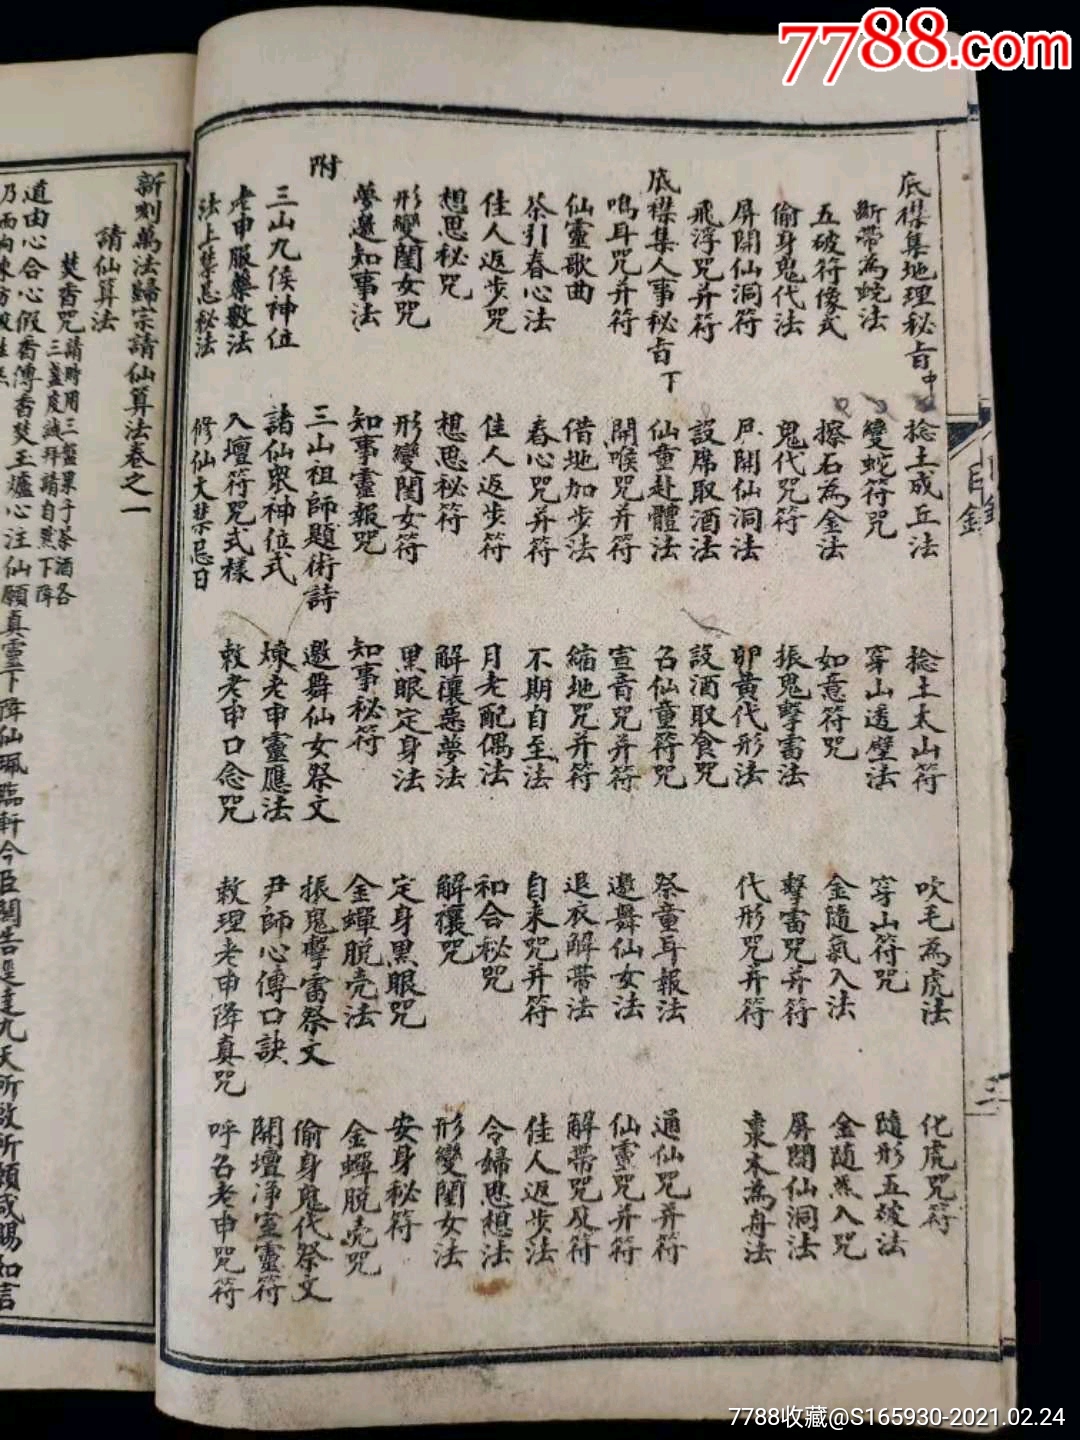 7788.com
底襟集地理秘旨中 捻土成丘法 捻土太山符 吹毛為虎法 化虎咒符
斷帶為蛇法 變蛇符咒 穿山透壁法 穿山符咒 隨形五破法
五破符像式 擦石為金法 如意符咒 金隨氣入法 金隨炁入咒
偷身鬼代法 鬼代咒符 振鬼擊雷法 擊雷咒并符 屏開仙洞法
屏開仙洞符 開仙洞法 卵黃代形法 代形咒并符 棗木為舟法
飛浮咒并符 設席取酒法 設酒取食咒
底襟集人事秘旨下 仙童赴體法 名仙童符咒 祭童耳報法 通仙咒并符
鳴耳咒并符 開喉咒并符 宣音咒并符 邀舞仙女法 仙靈咒并符
仙靈歌曲 借地加步法 縮地咒并符 退衣解帶法 解帶咒及符
茶引春心法 春心咒并符 不期自至法 自来咒并符 佳人返步法
佳人返步咒 佳人返步符 月老配偶法 和合秘咒 令婦思想法
想思秘咒 想思秘符 解禳惡夢法 解禳咒 形變閨女法
形變閨女咒 形變閨女符 黑眼定身法 定身黑眼咒 安身秘符
夢邀知事法 知事靈報咒 知事秘符 金蟬脱壳法 金蟬脱壳咒
附 三山祖師題術詩 邀舞仙女祭文 振鬼擊雷祭文 偷身鬼代祭文
三山九侯神位 諸仙衆神位式 煉老申靈應法 尹師心傳口訣 開壇淨室靈符
老申服藥數法 入壇符咒式樣 敕老申口念咒 敕理老申降真咒 呼名老申咒符
法上禁忌秘法 修仙大禁忌日
目錄
三
新刻萬法歸宗請仙算法卷之一
請仙算法
焚香咒
請時用三盤果子茶酒各
三盞虔誠拜請自然下降
道由心合心假香傳香焚玉爐心注仙願真靈下降仙珮臨軒今臣關告逕達九天所啟所願咸賜如言
7788收藏@S165930-2021.02.24